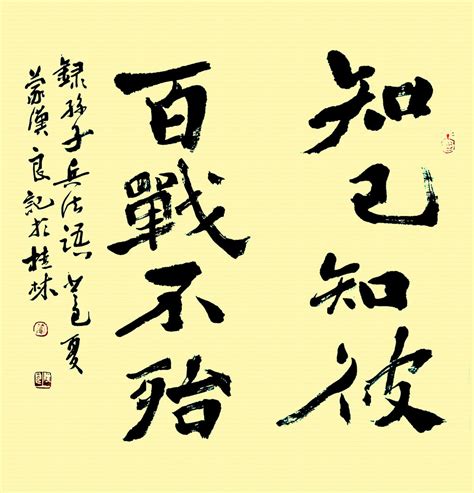 知己知彼
百戰不殆
録孫子兵法語夏
蒙漢良記於桂林